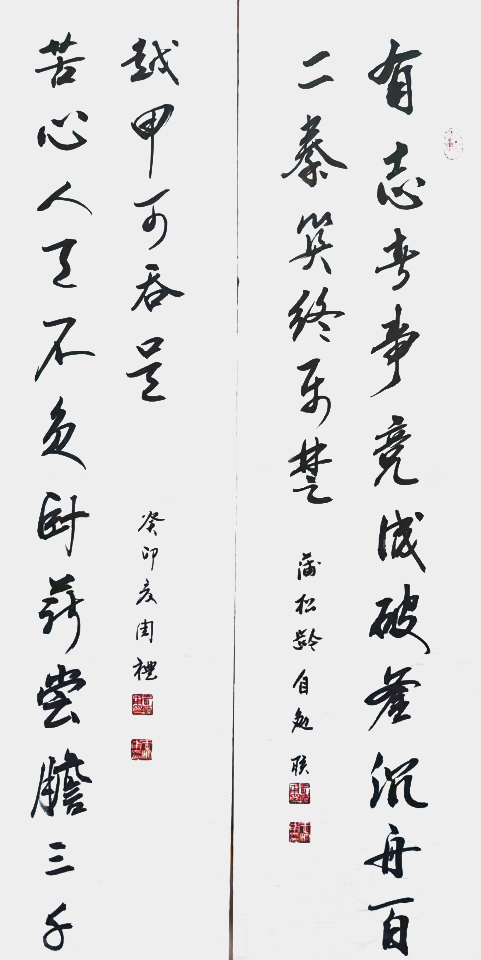 有志者事竟成破釜沉舟百
二秦关终属楚
蒲松龄自勉联
苦心人天不负卧薪尝膽三千
越甲可吞吴
癸卯夏周禮